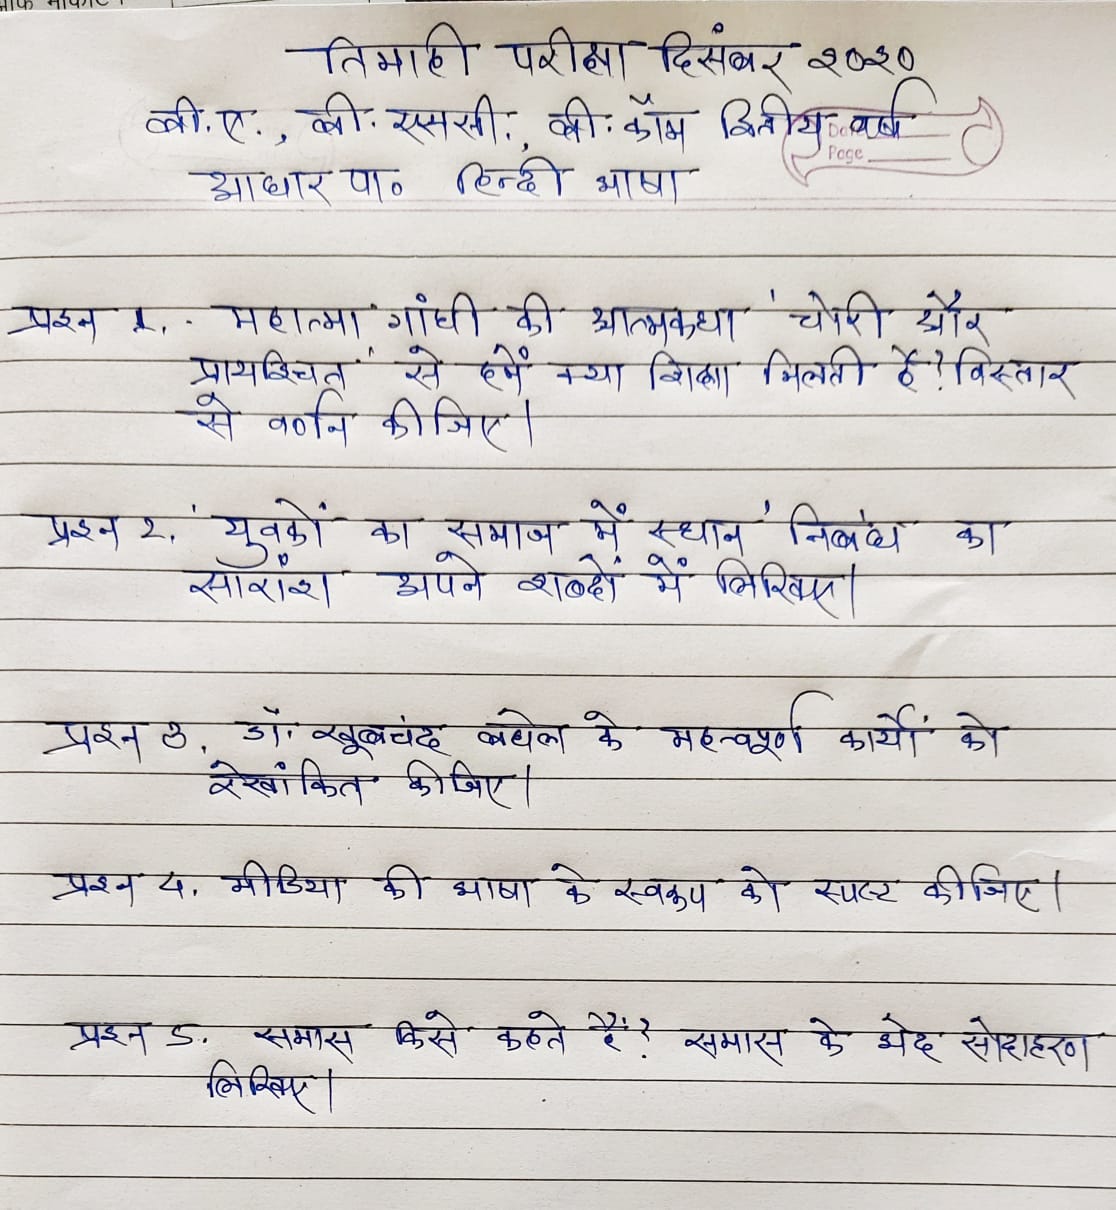 तिमाही परीक्षा दिसंबर २०२०
बी.ए., बी.एससी., बी.कॉम द्वितीय वर्ष
Page
आधार पा० हिन्दी भाषा
प्रश्न 1. महात्मा गांधी की आत्मकथा 'चोरी और
प्रायश्चित' से हमें क्या शिक्षा मिलती है? विस्तार
से वर्णन कीजिए।
प्रश्न 2. 'युवकों का समाज में स्थान' निबंध का
सारांश अपने शब्दों में लिखिए।
प्रश्न 3. डॉ. खूबचंद बघेल के महत्वपूर्ण कार्यों को
रेखांकित कीजिए।
प्रश्न 4. मीडिया की भाषा के स्वरूप को स्पष्ट कीजिए।
प्रश्न 5. समास किसे कहते हैं? समास के भेद सोदाहरण
लिखिए।